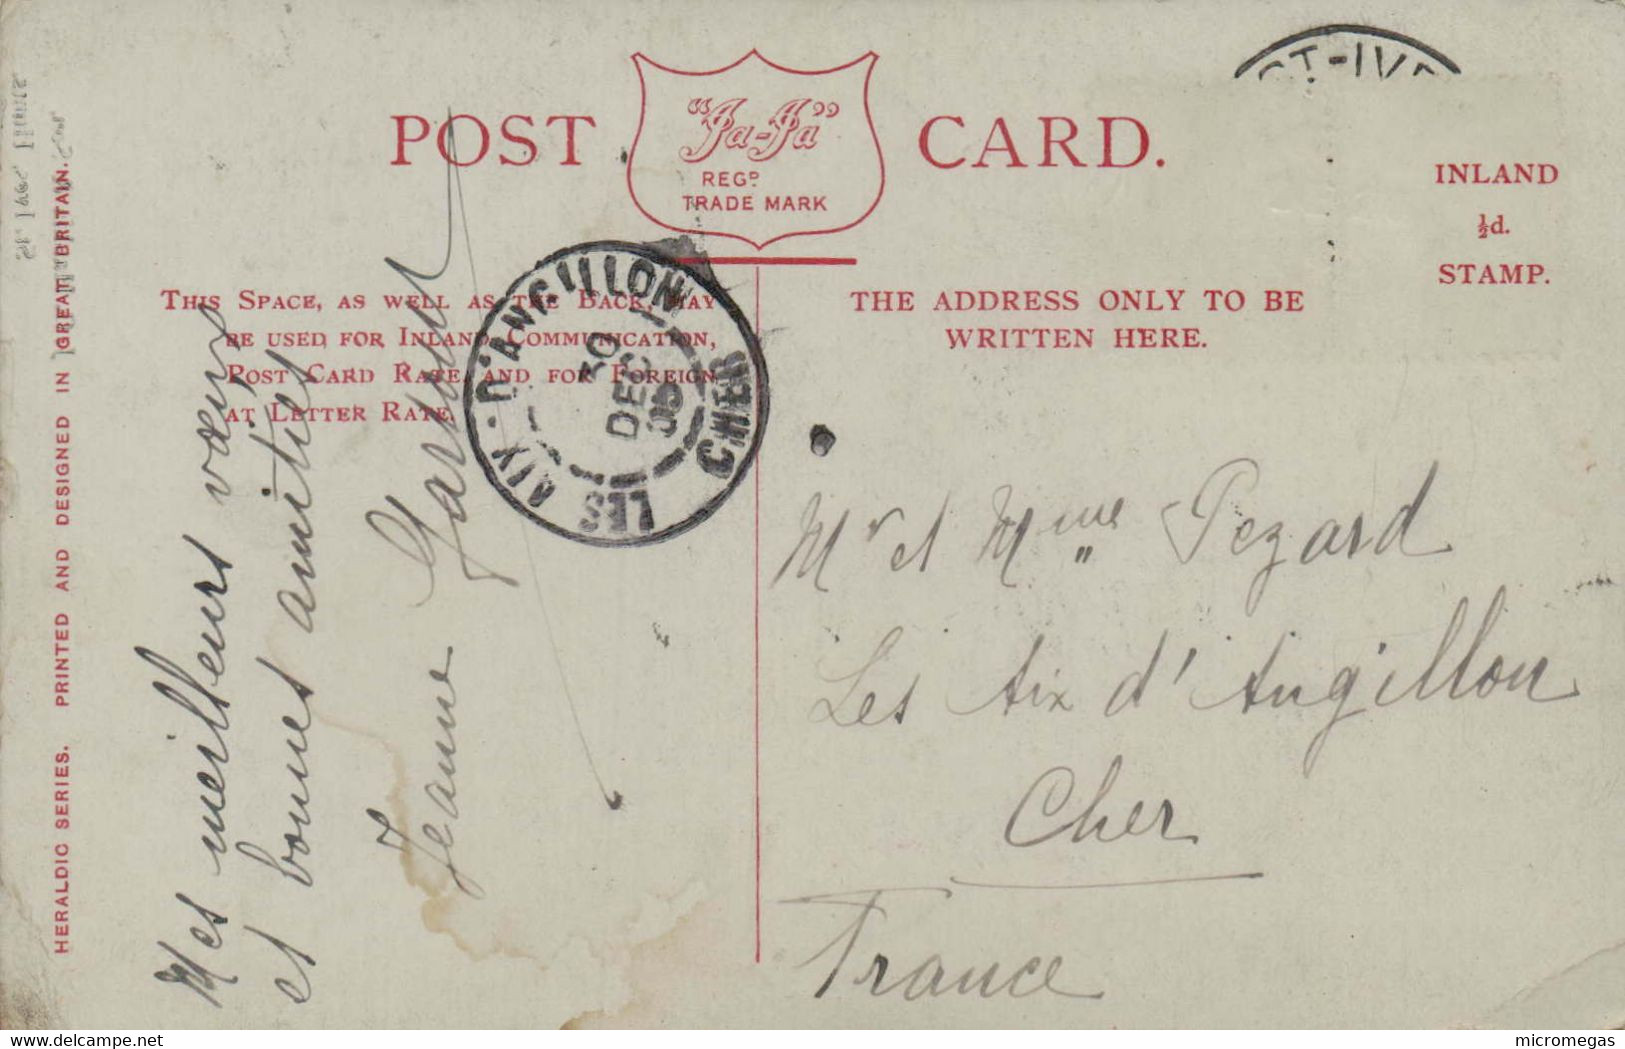 ST-IVE
POST CARD.
"Ja-Ja"
REGD
TRADE MARK
INLAND
½d.
STAMP.
THIS SPACE, AS WELL AS THE BACK, MAY
BE USED FOR INLAND COMMUNICATION,
POST CARD RATE, AND FOR FOREIGN
AT LETTER RATE.
THE ADDRESS ONLY TO BE
WRITTEN HERE.
LES AIX-D'ANGILLON
30
DEC
05
CHER
HERALDIC SERIES. PRINTED AND DESIGNED IN GREAT BRITAIN.
Mes meilleurs vœux
et bonnes amitiés
Jeanne
Mr et Mme Pezard
Les Aix d'Angillon
Cher
France
delcampe.net
micromegas